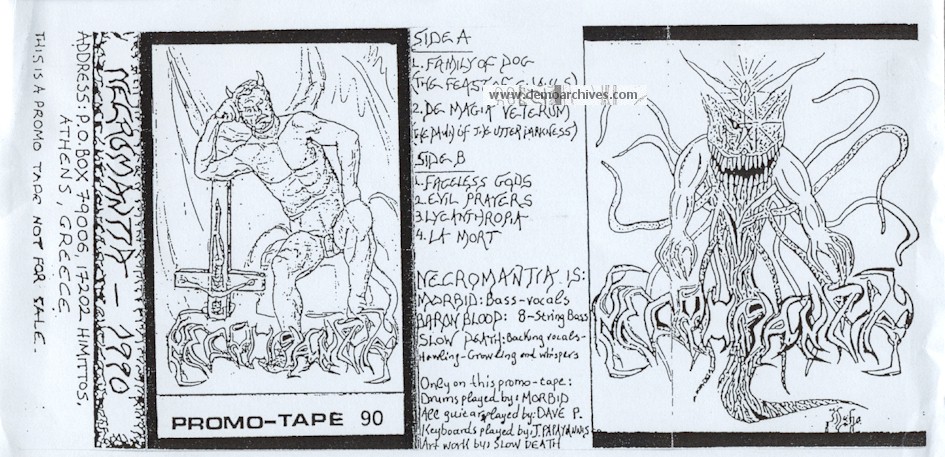 THIS IS A PROMO TAPE NOT FOR SALE.
ADDRESS: P.O. BOX 79006, 17202 HIMITTOS,
ATHENS, GREECE
NECROMANTIA - 1990
NECROMANTIA
PROMO-TAPE 90
SIDE A
1. FAMILY OF DOG
(THE FEAST OF
www.demoarchives.com
2. DE MAGIA VETERUM
(THE PATH OF THE UTTER DARKNESS)
SIDE B
1. FACELESS GODS
2. EVIL PRAYERS
3. LYCANTHROPIA
4. LA MORT
NECROMANTIA IS:
MORBID: Bass-vocals
BARON BLOOD: 8-String Bass
SLOW DEATH: Backing vocals-
Howling-Growling and whispers
Only on this promo-tape:
Drums played by: MORBID
All guitar played by: DAVE P.
Keyboards played by: J. PAPAYANNIS
Art work by: SLOW DEATH
NECROMANTIA